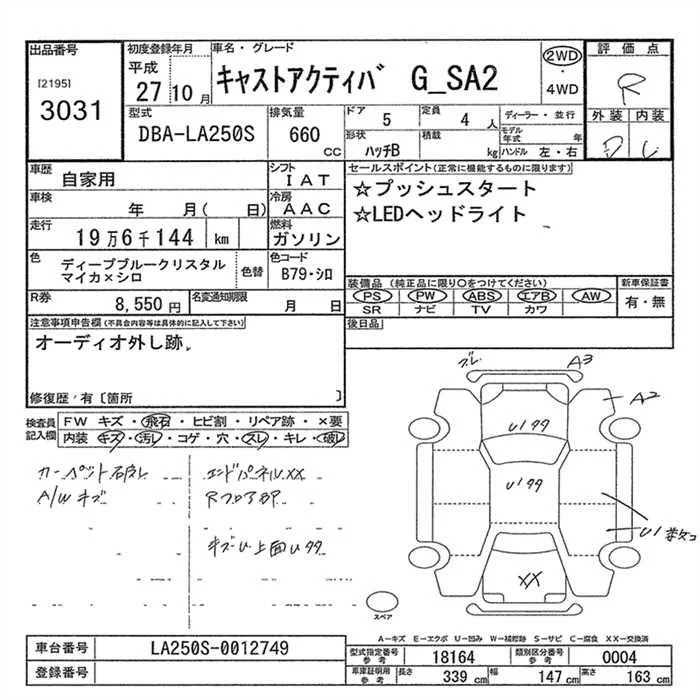 出品番号
[2195]
3031
初度登録年月
平成
27 10 月
車名・グレード
キャストアクティバ G_SA2
2WD
・
4WD
評価点
R
外装 内装
D
型式
DBA-LA250S
排気量
660
CC
ドア
5
定員
4 人
形状
ハッチB
積載
kg
ディーラー・並行
モデル年式 年
ハンドル 左・右
車歴
自家用
シフト
IAT
車検
年 月( 日)
冷房
AAC
走行
19万6千144 km
燃料
ガソリン
色
ディープブルークリスタル
マイカ×シロ
色替
色コード
B79・シロ
R券
8,550 円
名変通知期限
月 日
セールスポイント(正常に機能するものに限ります)
☆プッシュスタート
☆LEDヘッドライト
装備品 (純正品に限り〇をつけてください)
PS PW ABS エアB AW
SR ナビ TV カワ
新車保証書
有・無
後日品
注意事項申告欄(不具合内容等は具体的に記入して下さい)
オーディオ外し跡、
修復歴・有〔箇所 〕
検査員
記入欄
FW キズ・飛石・ヒビ割・リペア跡・×要
内装 キズ・汚レ・コゲ・穴・スレ・キレ・破レ
A/W キズ
エンドパネルXX
Rフロア部
A3
A2
U199
U199
U1
XX
スペア
A−キズ E−エクボ U−凹み W−補修跡 S−サビ C−腐食 XX−交換済
車台番号
LA250S-0012749
登録番号
型式指定番号
参考
18164
類別区分番号
参考
0004
車庫証明用
参考
長さ
339 cm
幅
147 cm
高さ
163 cm